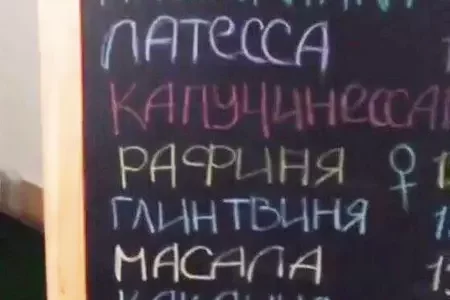 ЛАТЕССА
КАПУЧИНЕССА
РАФИНЯ ♀
ГЛИНТВИНЯ
МАСАЛА